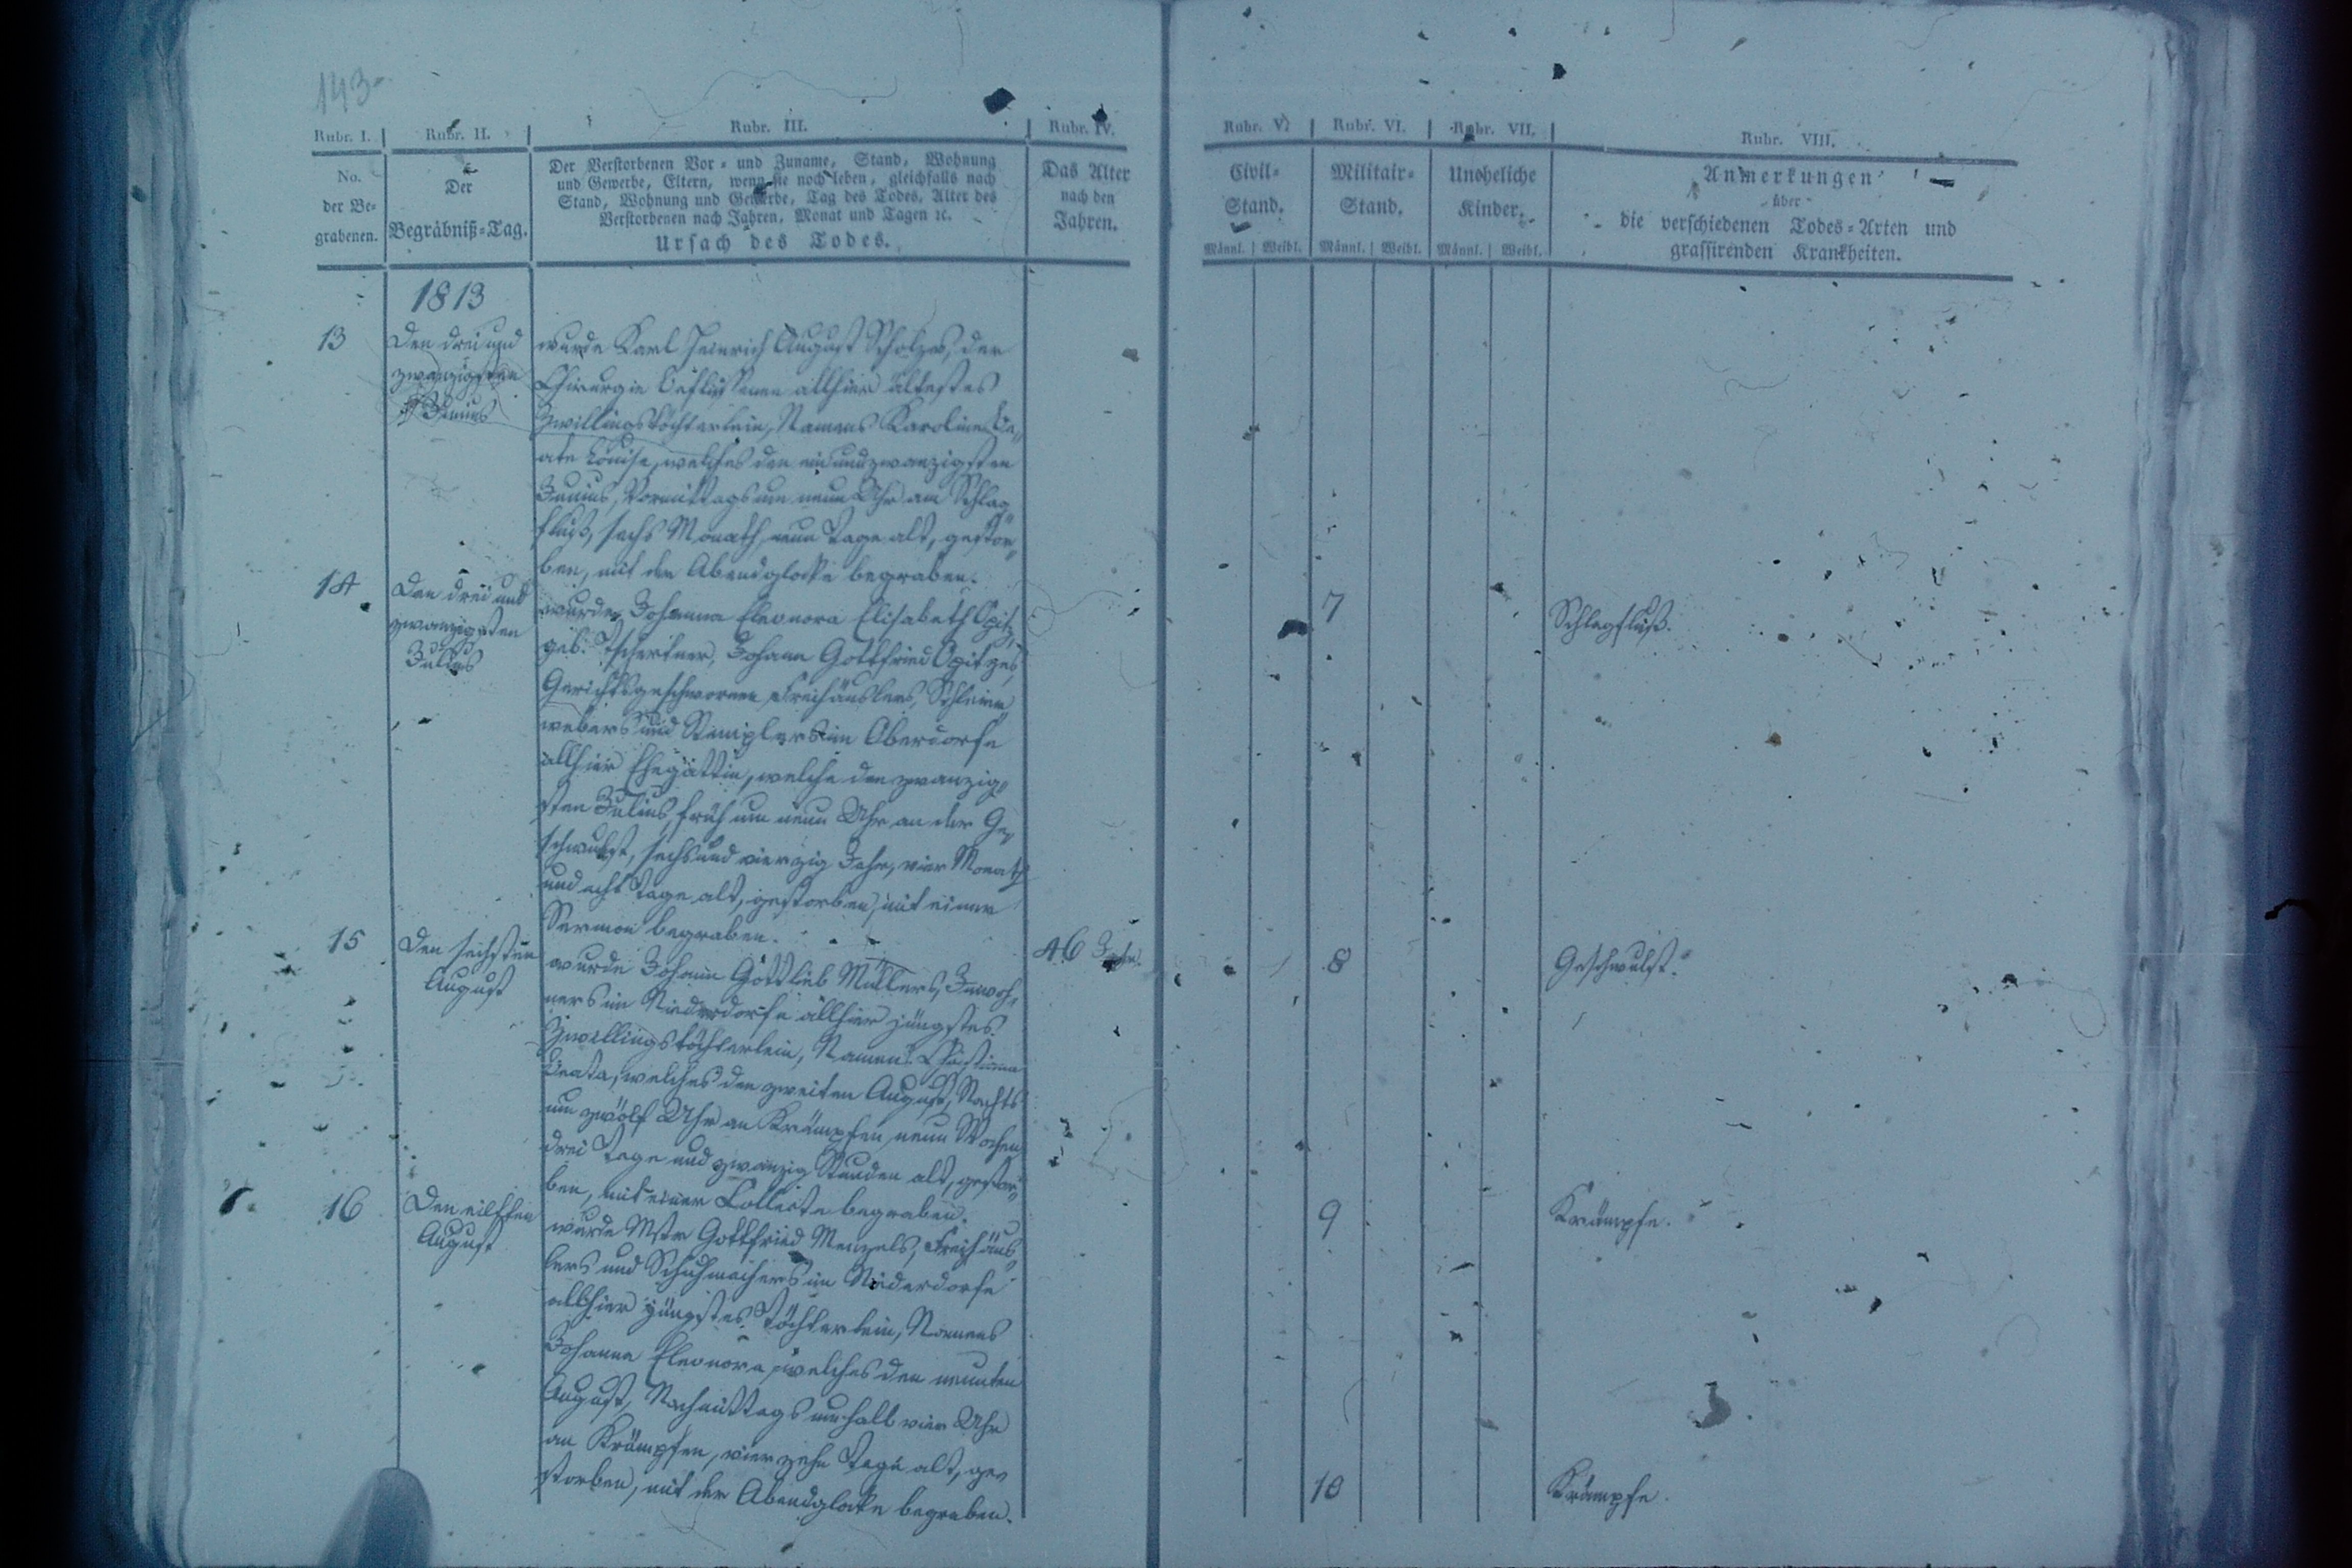 143.
Rubr. I. Rubr. II. Rubr. III. Rubr. IV. Rubr. V. Rubr. VI. Rubr. VII. Rubr. VIII.
No.
der Be-
grabenen.
Der
Begräbniß-Tag.
Der Verstorbenen Vor- und Zuname, Stand, Wohnung
und Gewerbe, Eltern, wenn sie noch leben, gleichfalls nach
Stand, Wohnung und Gewerbe, Tag des Todes, Alter des
Verstorbenen nach Jahren, Monat und Tagen ꝛc.
Ursach des Todes.
Das Alter
nach den
Jahren.
Civil-
Stand.
Männl. Weibl.
Militair-
Stand.
Männl. Weibl.
Uneheliche
Kinder.
Männl. Weibl.
Anmerkungen
über
die verschiedenen Todes-Arten und
grassirenden Krankheiten.
1813
13
Den drei und
zwanzigsten
Junius
wurde Karl Heinrich August Scholzes, der
Chirurgie Beflissenen allhier ältestes
Zwillingstöchterlein, Namens Karoline Be-
ate Louise, welches den einundzwanzigsten
Junius, Vormittags um neun Uhr am Schlag-
fluß, sechs Monath, neun Tage alt, gestor-
ben, mit der Abendglocke begraben.
7
Schlagfluß.
14
Den drei und
zwanzigsten
Julius
wurde Johanna Eleonora Elisabeth Opitz
geb. Johann Gottfried Opitzes,
Gerichtsgeschwornen, Freihäuslers,
webers und im Oberdorfe
allhier Ehegattin, welche den zwanzig-
sten Julius, früh um neun Uhr an der Ge-
schwulst, sechsundvierzig Jahr, vier Monath
und acht Tage alt, gestorben, mit einer
Sermon begraben.
46 Jahr.
8
Geschwulst.
15
Den sechsten
August
wurde Johann Gottlieb Müllers, Inwoh-
ners im Niederdorfe allhier jüngstes
Zwillingstöchterlein, Namens Christiana
Beata, welches den zweiten August, Nachts
um zwölf Uhr an Krämpfen, neun Wochen
drei Tage und zwanzig Stunden alt, gestor-
ben, mit einer Collecte begraben.
9
Krämpfe.
16
Den eilften
August
wurde Mstr Gottfried Menzels, Freihäus-
lers und Schuhmachers im Niederdorfe
allhier jüngstes Töchterlein, Namens
Johanne Eleonora, welches den neunten
August, Nachmittags um halb vier Uhr
an Krämpfen, vierzehn Tage alt, ge-
storben, mit der Abendglocke begraben.
10
Krämpfe.